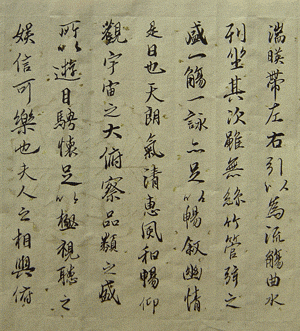 湍暎帶左右引以為流觴曲水
列坐其次雖無絲竹管弦之
盛一觴一詠亦足以暢叙幽情
是日也天朗氣清惠風和暢仰
觀宇宙之大俯察品類之盛
所以遊目騁懷足以極視聽之
娛信可樂也夫人之相與俯